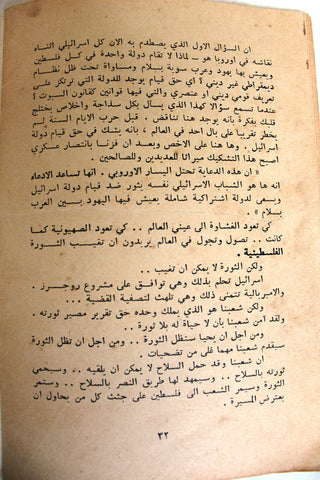 ان السؤال الاول الذي يصطدم به الان كل اسرائيلي اثناء
نقاشه في اوروبا هو — لماذا لا تقام دولة واحدة في كل فلسطين
ويعيش بها يهود وعرب سوية بسلام ومساواة تحت ظل نظام
ديمقراطي غير ديني ؟ أي حق قيام يوجد للدولة التي ترتكز على
تعريف قومي ديني أو عنصري والتي فيها قوانين كقانون السبوت ؟
عندما تسمع سؤالا كهذا الذي يسأل بكل سذاجة واخلاص يختلج
قلبك بفكرة بأنه يوجد هنا تناقض . قبل حرب الايام الستة لم
يخطر تقريبا على بال احد في العالم ء بأنه يشك في حق قيام دولة
اسرائيل . وها هنا على الاخص وبعد ان فزنا بانتصار عسكري
أصبح هذا التشكيك ميراثا للعديدين وللصالحين .
« ان هذه الدعاية تحتل اليسار الاوروبي . انها تساعد الادعاء
انه ها هو الشباب الاسرائيلي نفسه يثور ضد قيام دولة اسرائيل
ويسعى لدولة اشتراكية شاملة يعيش فيها اليهود بين العرب
بسلام » .
كي تعود الغشاوة الى عيني العالم .. كي تعود الصهيونية كما
كانت .. تصول وتجول في العالم يريدون ان تغيب الثورة
الفلسطينية .
ولكن الثورة لا يمكن ان تغيب ..
اسرائيل تحلم بذلك وهي توافق على مشروع روجرز .
والامبريالية تتمنى ذلك وهي تلهث لتصفية القضية ...
ولكن شعبنا هو الذي يملك وحده حق تقرير مصير ثورته .
ولقد آمن شعبنا بان لا حياة له بلا ثورة ..
ومن اجل ان يحيا ستظل الثورة .. ومن اجل ان تظل الثورة
سيقدم شعبنا مهما غلى من تضحيات .
ان شعبنا وقد حمل السلاح لا يمكن ان يلقيه .. وسيحمي
ثورته بالسلاح .. وسيمهد لها طريق النصر بالسلاح .. وستمر
الثورة وسيمر الشعب الى فلسطين على جثث كل من يحاول ان
يعترض المسيرة .
٣٢